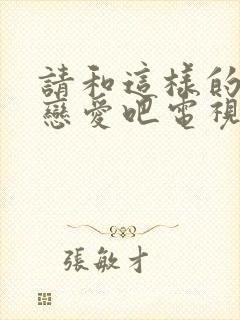 請和這樣的
戀愛吧電視
張敏才